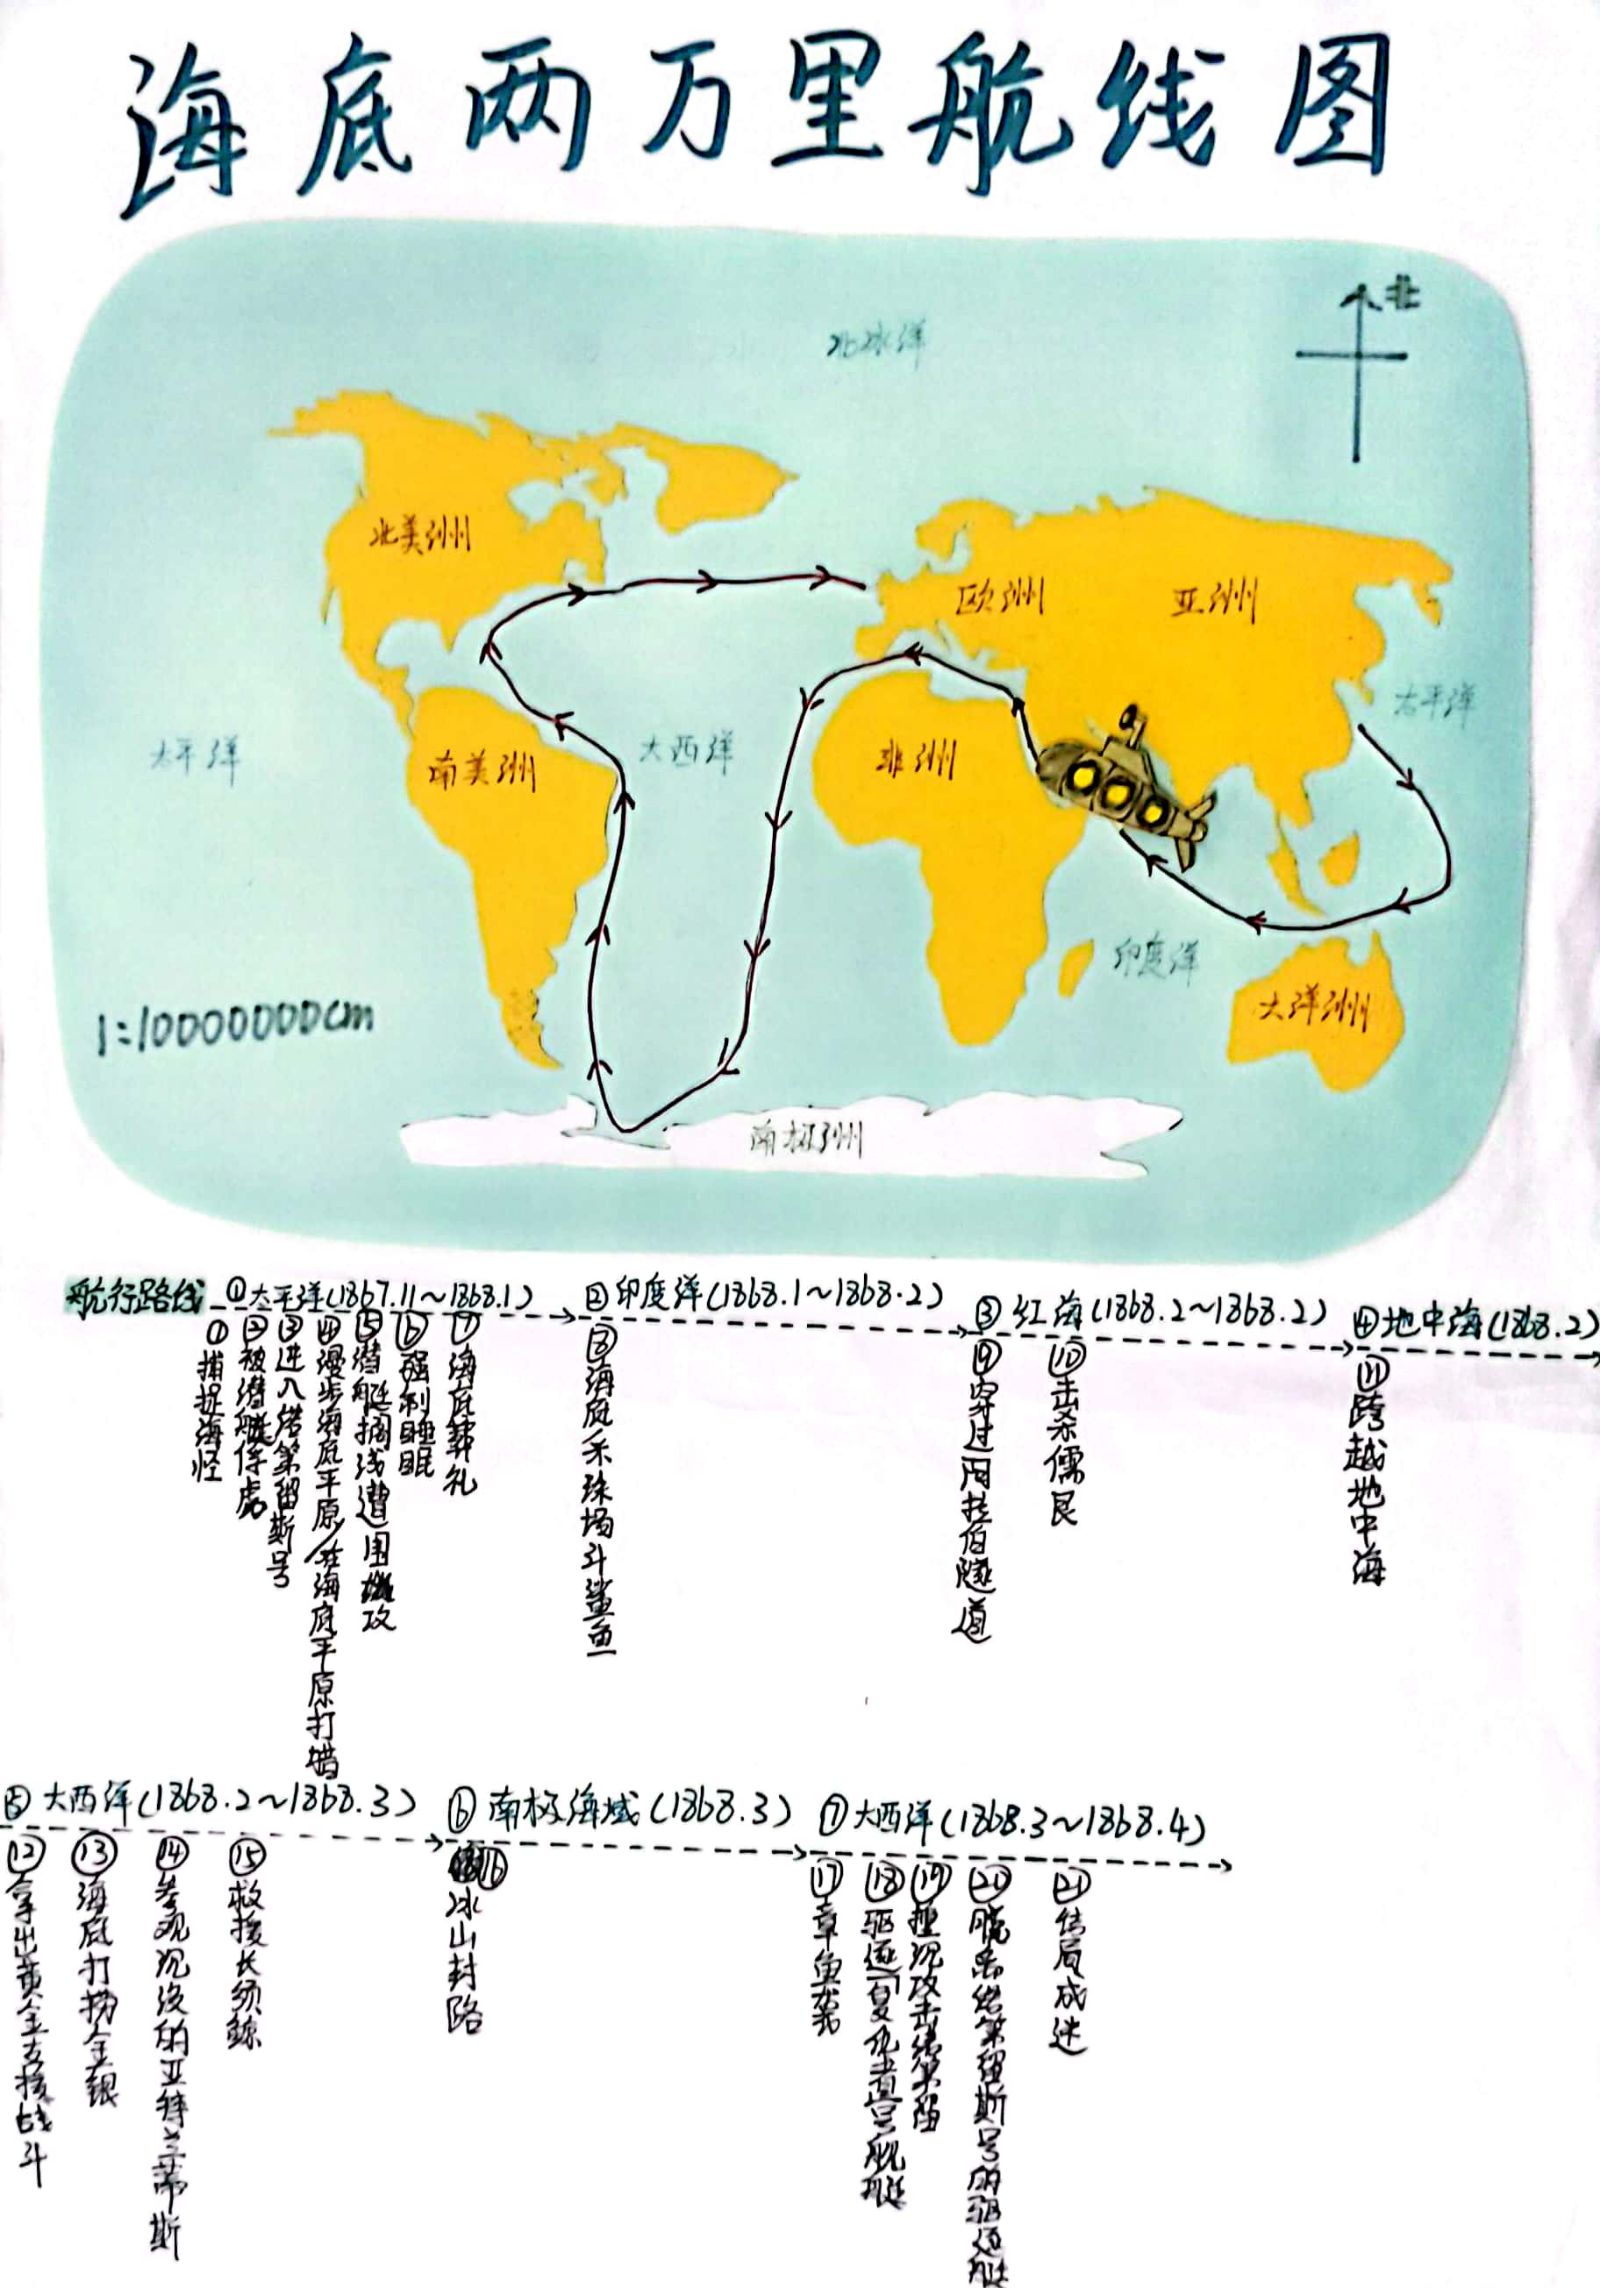 海底两万里航线图
北
北冰洋
北美洲
欧洲
亚洲
太平洋
太平洋
大西洋
南美洲
非洲
印度洋
大洋洲
1:10000000cm
南极洲
航行路线
①太平洋(1867.11~1868.1)
②印度洋(1868.1~1868.2)
③红海(1868.2~1868.2)
④地中海(1868.2)
①捕捉海怪
②被潜艇俘虏
③进入诺第留斯号
④漫步海底平原/在海底平原打猎
⑤潜艇搁浅遭围攻
⑥强制睡眠
⑦海底葬礼
⑧海底采珠场斗鲨鱼
⑨穿过阿拉伯隧道
⑩击杀儒艮
⑪跨越地中海
⑤大西洋(1868.2~1868.3)
⑥南极海域(1868.3)
⑦大西洋(1868.3~1868.4)
⑫拿出黄金支援战斗
⑬海底打捞金银
⑭参观沉没的亚特兰蒂斯
⑮救援长须鲸
⑯冰山封路
⑰章鱼袭
⑱驱逐复仇者号舰艇
⑲撞沉攻击
⑳脱离诺第留斯号的驱逐艇
㉑结局成迷